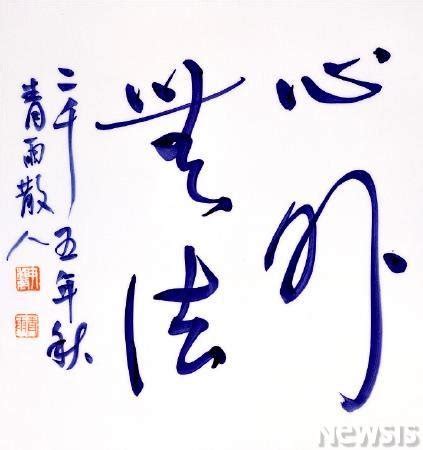 心外
無法
二千五年秋
青雨散人
NEWSIS